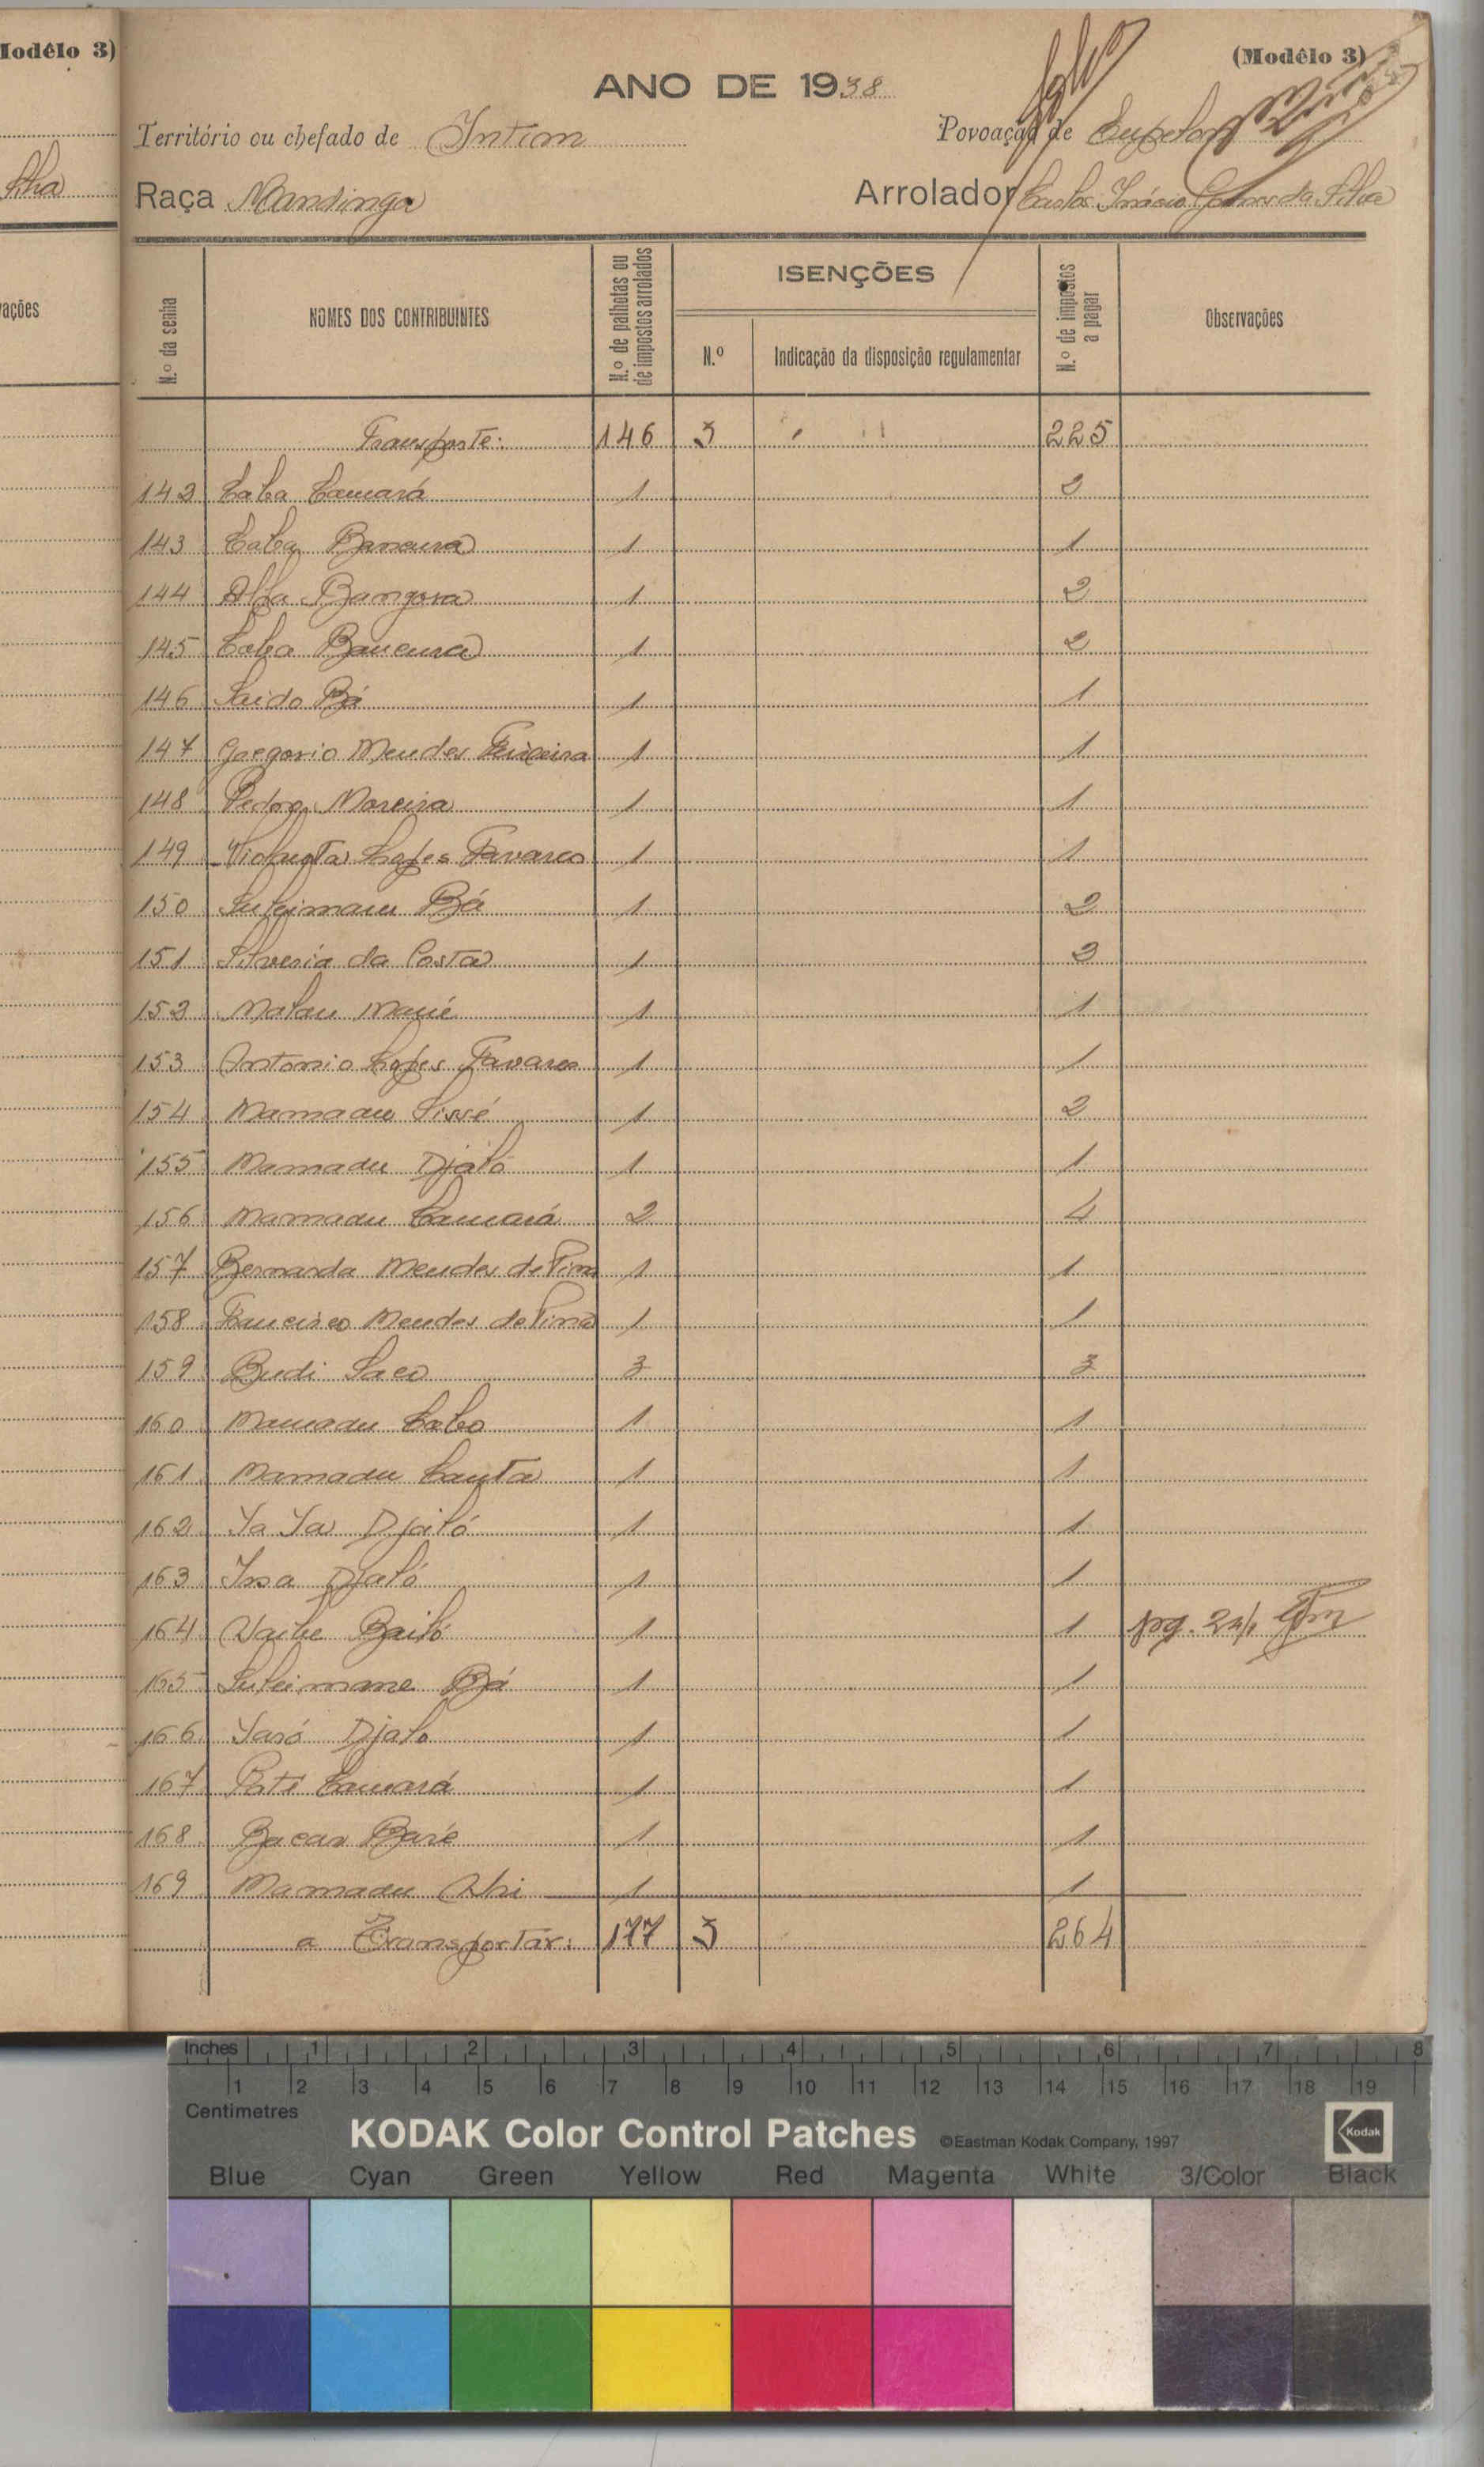 lodêlo 3)
(Modêlo 3)
ANO DE 1938
Território ou chefado de Intim
Povoação de Cupelon
lha
Raça Mandinga
Arrolador Carlos Inácio Gomes da Silva
vações
N.º da senha
NOMES DOS CONTRIBUINTES
N.º de palhotas ou de impostos arrolados
ISENÇÕES
N.º
Indicação da disposição regulamentar
N.º de impostos a pagar
Observações
Transporte: 146 3 225
142 Laba Camará 1 2
143 Caba Bancura 1 1
144 Alfa Bangura 1 2
145 Caba Bancura 1 2
146 Saido Bá 1 1
147 Gregorio Mendes 1 1
148 Pedro Moreira 1 1
149 Lopes Tavares 1 1
150 Suleimane Bá 1 2
151 Silveria da Costa 1 2
152 Malan Mané 1 1
153 Antonio Lopes Tavares 1 1
154 Mamadu Sissé 1 2
155 Mamadu Djaló 1 1
156 Mamadu Camará 2 4
157 Bernarda Mendes de Pina 1 1
158 Francisco Mendes de Pina 1 1
159 Budi Saco 3 3
160 Mamadu Labo 1 1
161 Mamadu Canta 1 1
162 Ya Ya Djaló 1 1
163 Issa Djaló 1 1
164 Bailó 1 1 pg.
165 Suleimane Bá 1 1
166 Yaró Djalo 1 1
167 Paté Camará 1 1
168 Bacar Baré 1 1
169 Mamadu 1 1
a Transportar: 177 3 264
Inches 1 2 3 4 5 6 7 8
1 2 3 4 5 6 7 8 9 10 11 12 13 14 15 16 17 18 19
Centimetres
KODAK Color Control Patches ©Eastman Kodak Company, 1997 Kodak
Blue Cyan Green Yellow Red Magenta White 3/Color Black